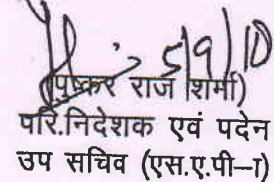 5/9/10
(पुष्कर राज शर्मा)
परि.निदेशक एवं पदेन
उप सचिव (एस.ए.पी–I)